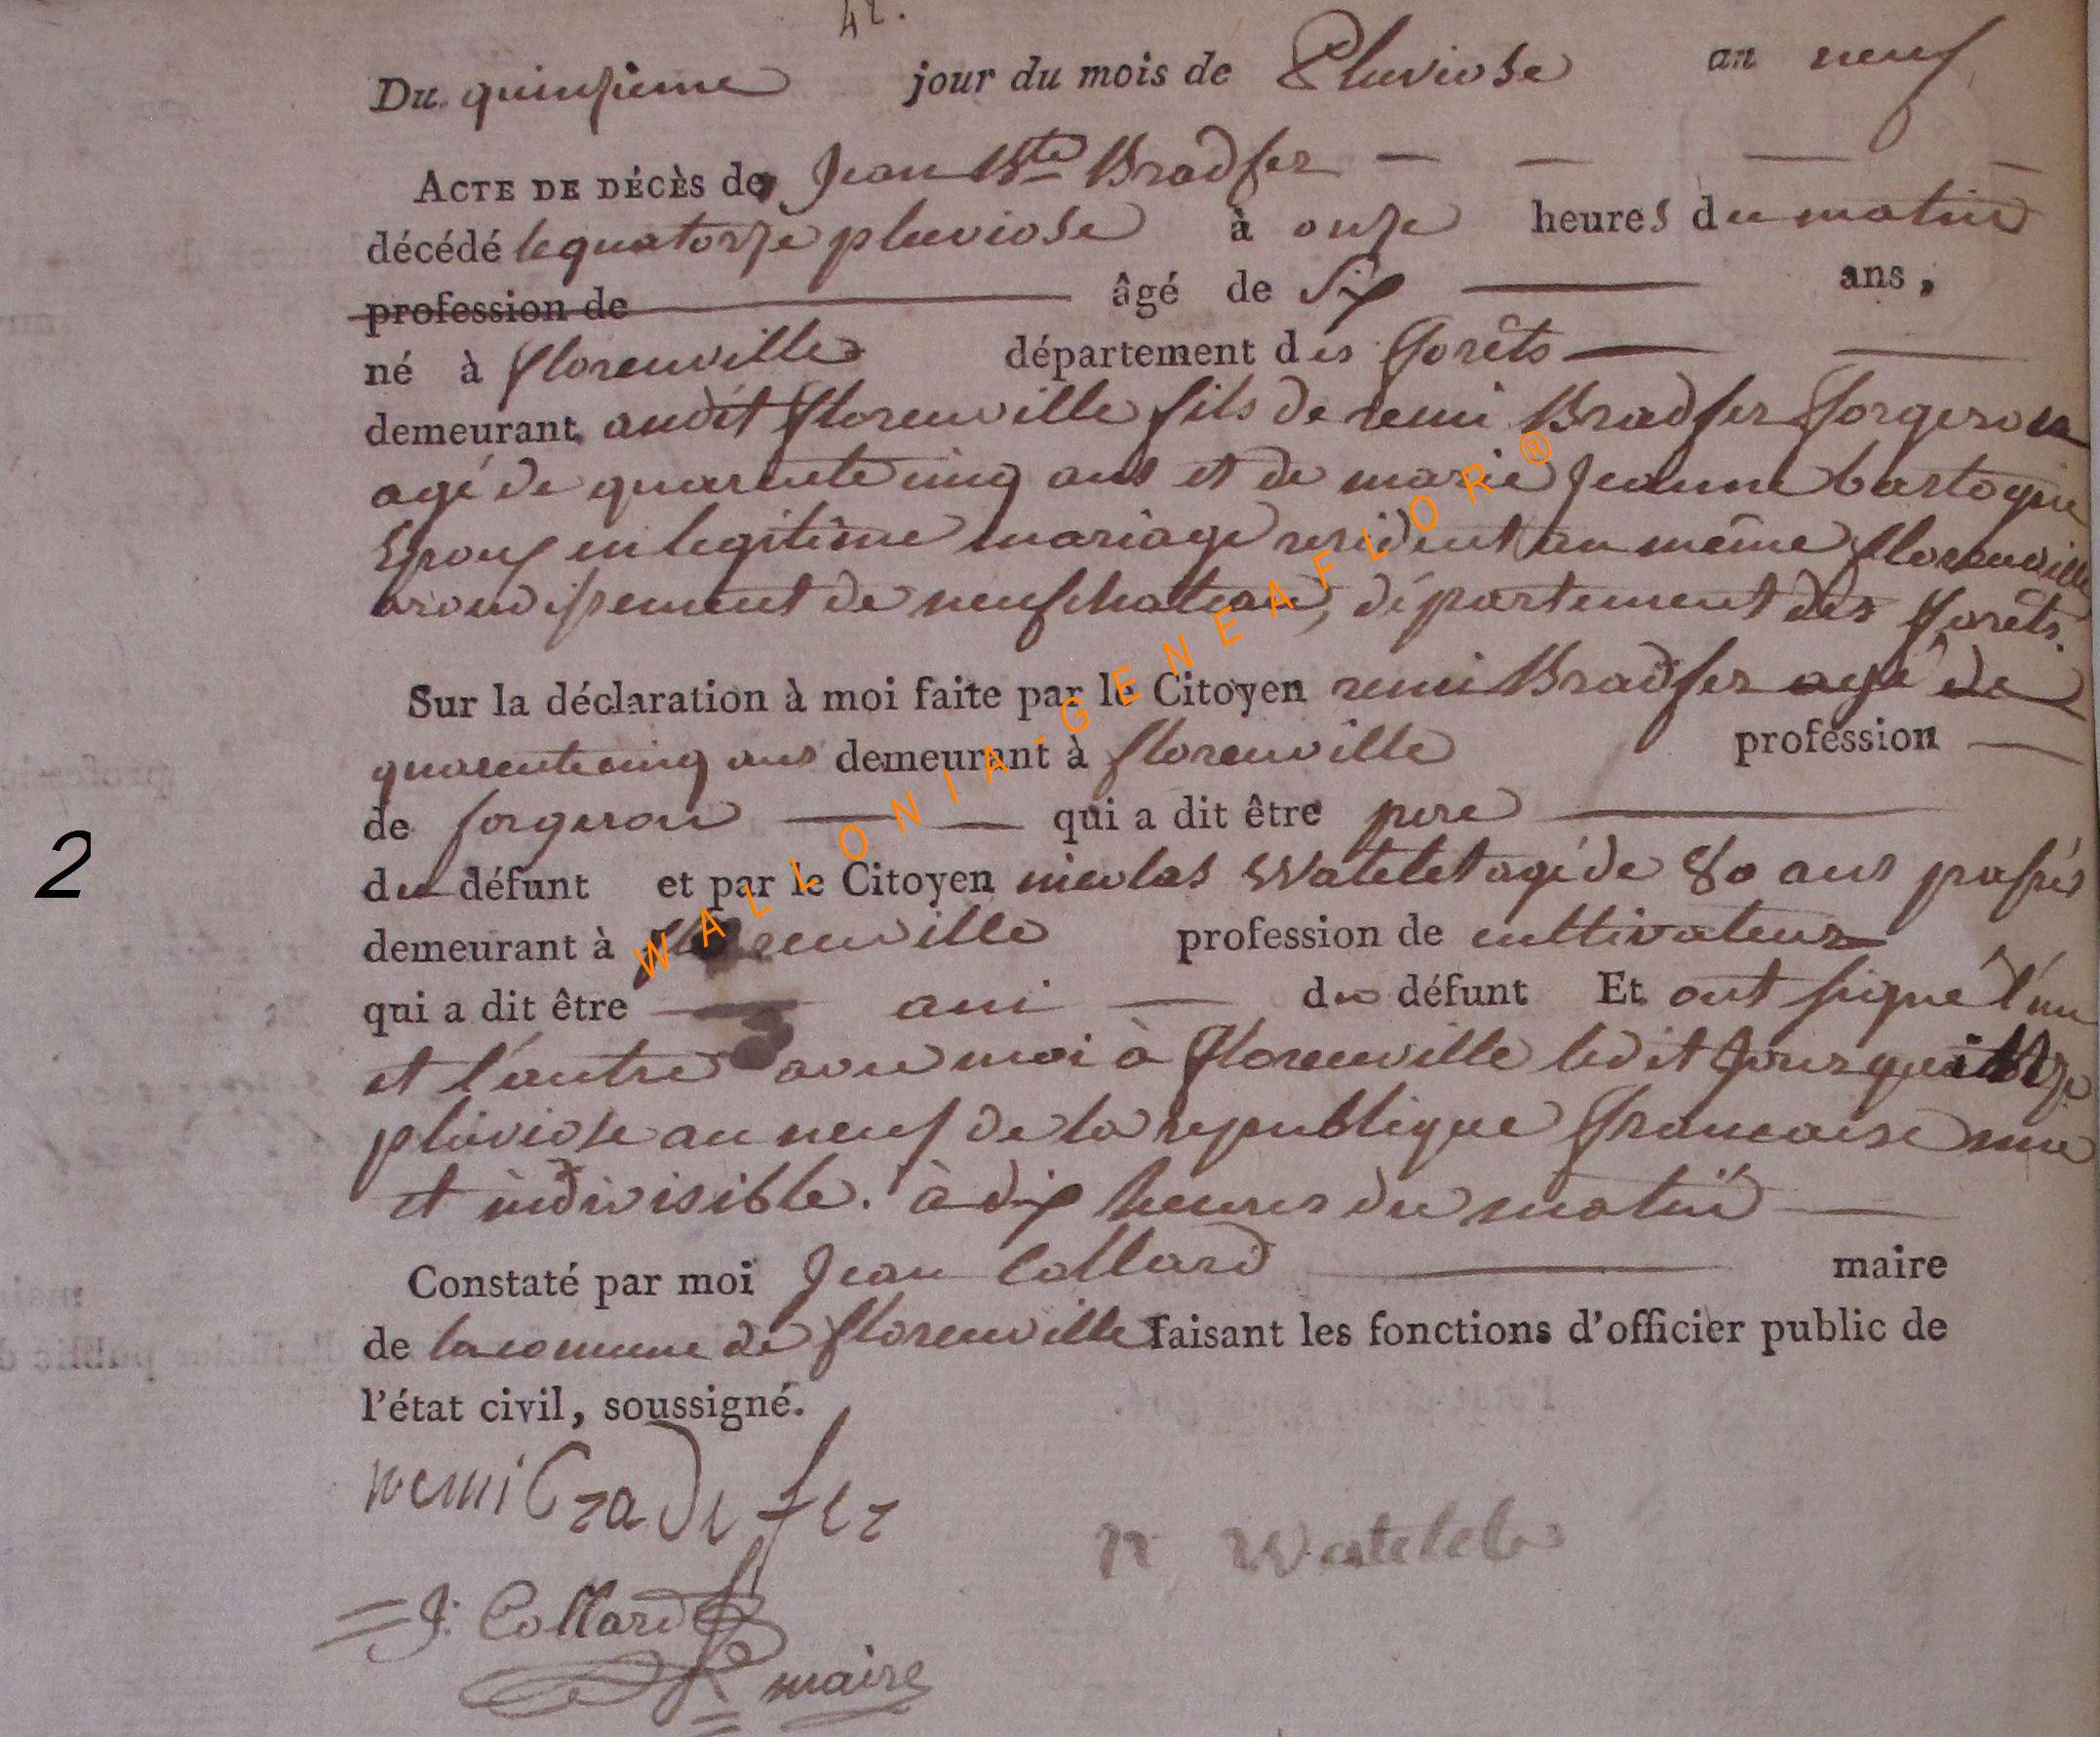 42.
Du quinzieme jour du mois de Pluviose an neuf
ACTE DE DÉCÈS de Jean Bte Bradfer
décédé le quatorze pluviose à onze heures du matin
profession de âgé de Six ans,
né à florenville département des forêts
demeurant audit florenville fils de remi Bradfer forgeron
agé de quarente cinq ans et de marie Jeanne bartogne
Epoux en legitime mariage resident au même florenville
arondissement de neufchateau, département des forêts.
Sur la déclaration à moi faite par le Citoyen remi Bradfer agé de
quarente cinq ans demeurant à florenville profession
de forgeron qui a dit être pere
du défunt et par le Citoyen nicolas Watelet agé de 80 ans passés
demeurant à florenville profession de cultivateur
qui a dit être ami du défunt Et ont signé l'un
et l'autre avec moi à florenville ledit jour quinze
pluviose an neuf de la republique francaise une
et indivisible. à dix heures du matin
Constaté par moi Jean Collard maire
de la commune de florenville faisant les fonctions d'officier public de
l'état civil, soussigné.
remi Brade fer
n Watelet
J: Collard
maire
2
WALLONIA-GENEAFLOR®